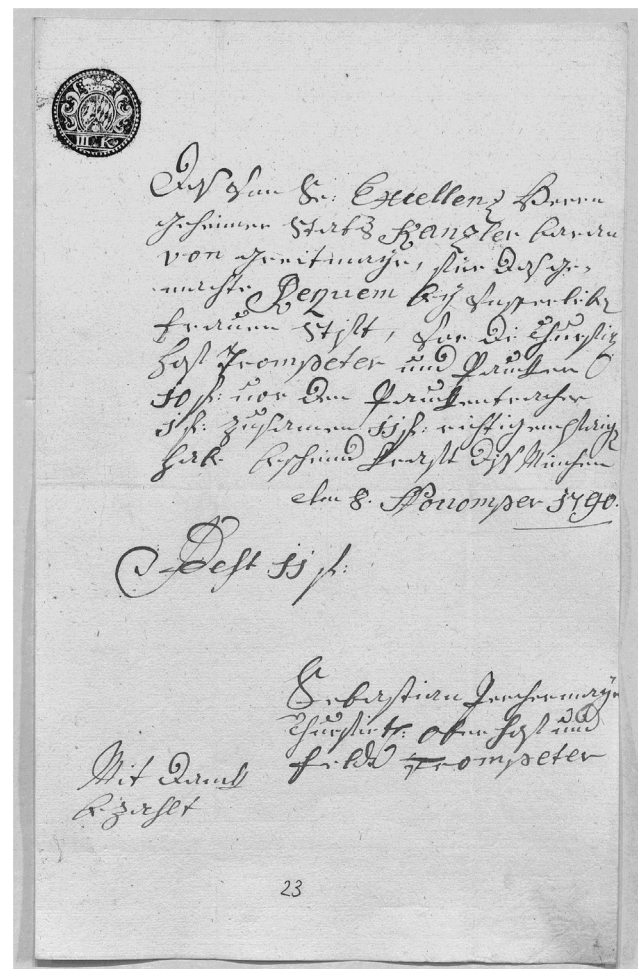 III K
Das von Se: Excellenz Herrn
geheimer Stats Kanzler baran
von Greitmayr, für das ge,
machte Requem bey unser lieb
frauen Stift, vor di Churfirst
hof Trompeter und Paucker
10 f: vor den Pauckentracher
1 f: zusamen 11 f: richtig empfang
habe bescheind Kraft diß München
den 8. Novomper 1790.
Idest 11 f:
Sebastian
Churfirtl: ober hof und
feld Trompeter
Mit Danck
bezahlt
23